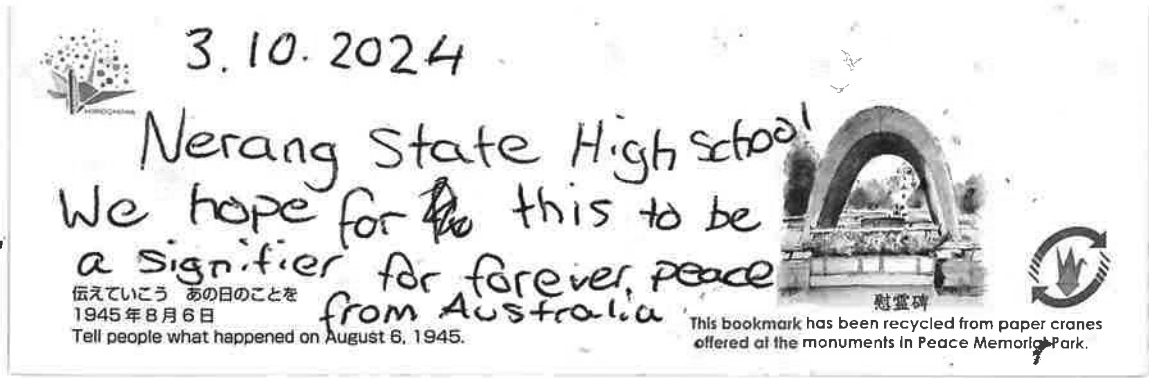 3.10.2024
Nerang State High School
We hope for this to be
a signifier for forever, peace
from Australia
伝えていこう あの日のことを
1945年8月6日
Tell people what happened on August 6, 1945.
慰霊碑
This bookmark has been recycled from paper cranes
offered at the monuments in Peace Memorial Park.